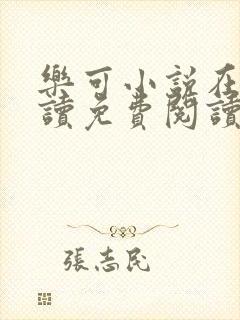 樂可小説在
讀免費閱讀
張志民